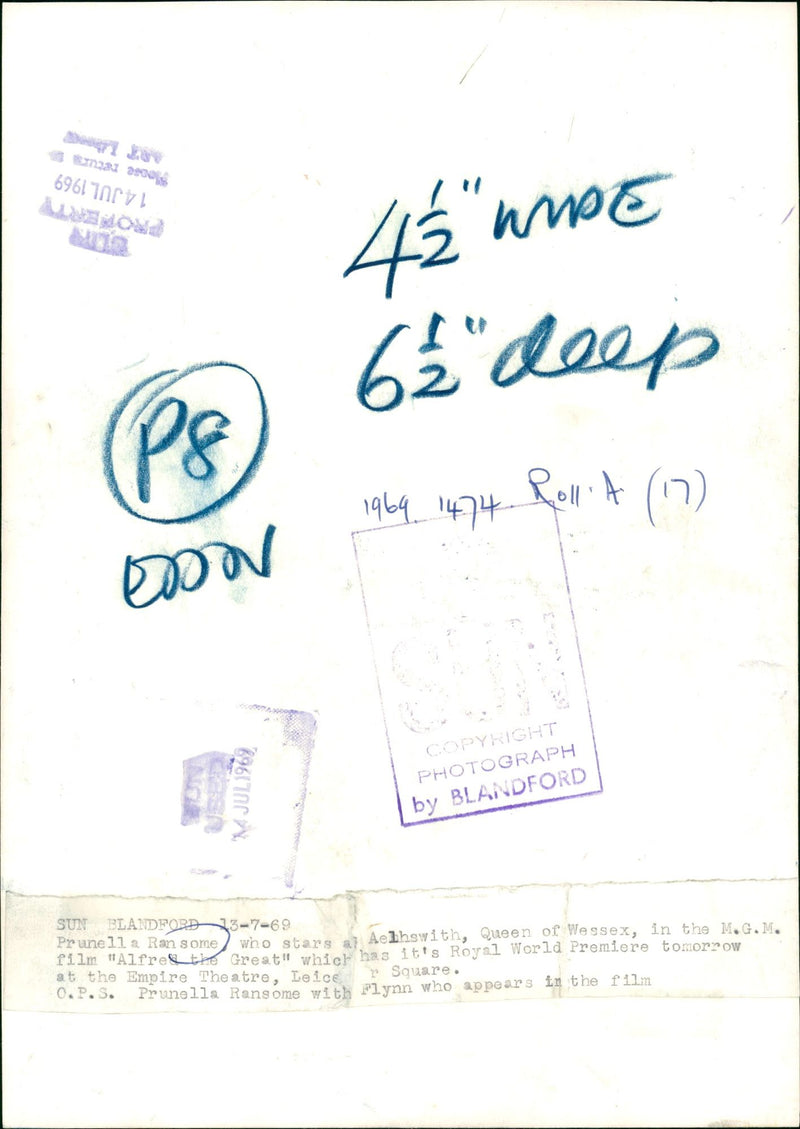 SUN
PROPERTY
14 JUL 1969
Please return to
ART Library
4 1/2" WIDE
6 1/2" deep
P8
1969. 1474. Roll. A (17)
SUN
COPYRIGHT
PHOTOGRAPH
by BLANDFORD
SUN
USED
14 JUL 1969
SUN BLANDFORD 13-7-69
Prunella Ransome, who stars a Aelhswith, Queen of Wessex, in the M.G.M.
film "Alfred the Great" which has it's Royal World Premiere tomorrow
at the Empire Theatre, Leice r Square.
O.P.S. Prunella Ransome with Flynn who appears in the film